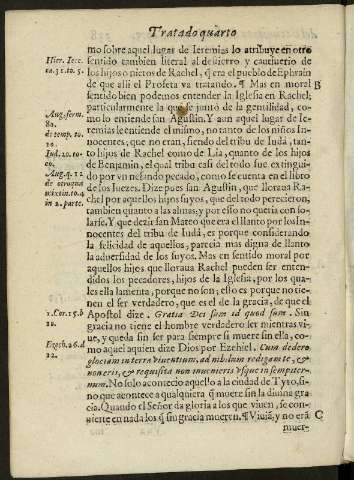 Tratado quarto
mo sobre aquel lugar de Ieremias lo atribuye en otro
Hier. Iere.
ca. 31. to. 5.
sentido tambien literal al destierro y cautiuerio de
los hijos o nietos de Rachel, q̃ era el pueblo de Ephrain
de que alli el Profeta va tratando. ¶ Mas en moral
B
sentido bien podemos entender la Iglesia en Rachel;
particularmente la que se juntó de la gentilidad, co-
Aug. serm.
80.
de temp. to.
10.
mo lo entiende san Agustin. Y aun aquel lugar de Ie-
remias le entiende el mismo, no tanto de los niños In-
nocentes, que no eran, siendo del tribu de Iudá, tan-
Iud. 20. to-
co.
to hijos de Rachel como de Lia, quanto de los hijos
de Benjamin, el qual tribu casi de todo fue extingui-
do por vn nefando pecado, como se cuenta en el libro
Aug. q. 12
in 2. parte.
de los Iuezes. Dize pues san Agustin, que lloraua Ra-
chel por aquellos hijos suyos, que del todo perecieron,
tambien quanto a las almas, y por esso no queria con so-
larse. Y que dezir san Mateo que era el llanto por los In-
nocentes del tribu de Iudá, es porque considerando
la felicidad de aquellos, parecia mas digna de llanto
la aduersidad de los suyos. Mas en sentido moral por
aquellos hijos que lloraua Rachel pueden ser enten-
didos los pecadores, hijos de la Iglesia, por los qua-
les ella lamenta, porque no son; esto es porque no tie-
nen el ser verdadero, que es el de la gracia, de que el
1. Cor. 15. b
10.
Apostol dize. Gratia Dei sum id quod sum. Sin
gracia no tiene el hombre verdadero ser mientras vi-
ue, y queda sin ser para siempre si muere sin ella, co-
Ezech. 26. d
22.
mo aquel a quien dize Dios por Ezehiel. Cum dedero
gloriam in terra viuentium, ad nihilum redigam te, &
non eris, & requisita non inuenieris vsque in sempiter-
num. No solo acontecio aquello a la ciudad de Tyro, si-
no que acontece a qualquiera q̃ muere sin la diuina gra-
cia. Quando el Señor da gloria a los que viuen, se con-
uierte en nada los q̃ sin gracia mueren. ¶ Viuiã, y no erã
C
muer-